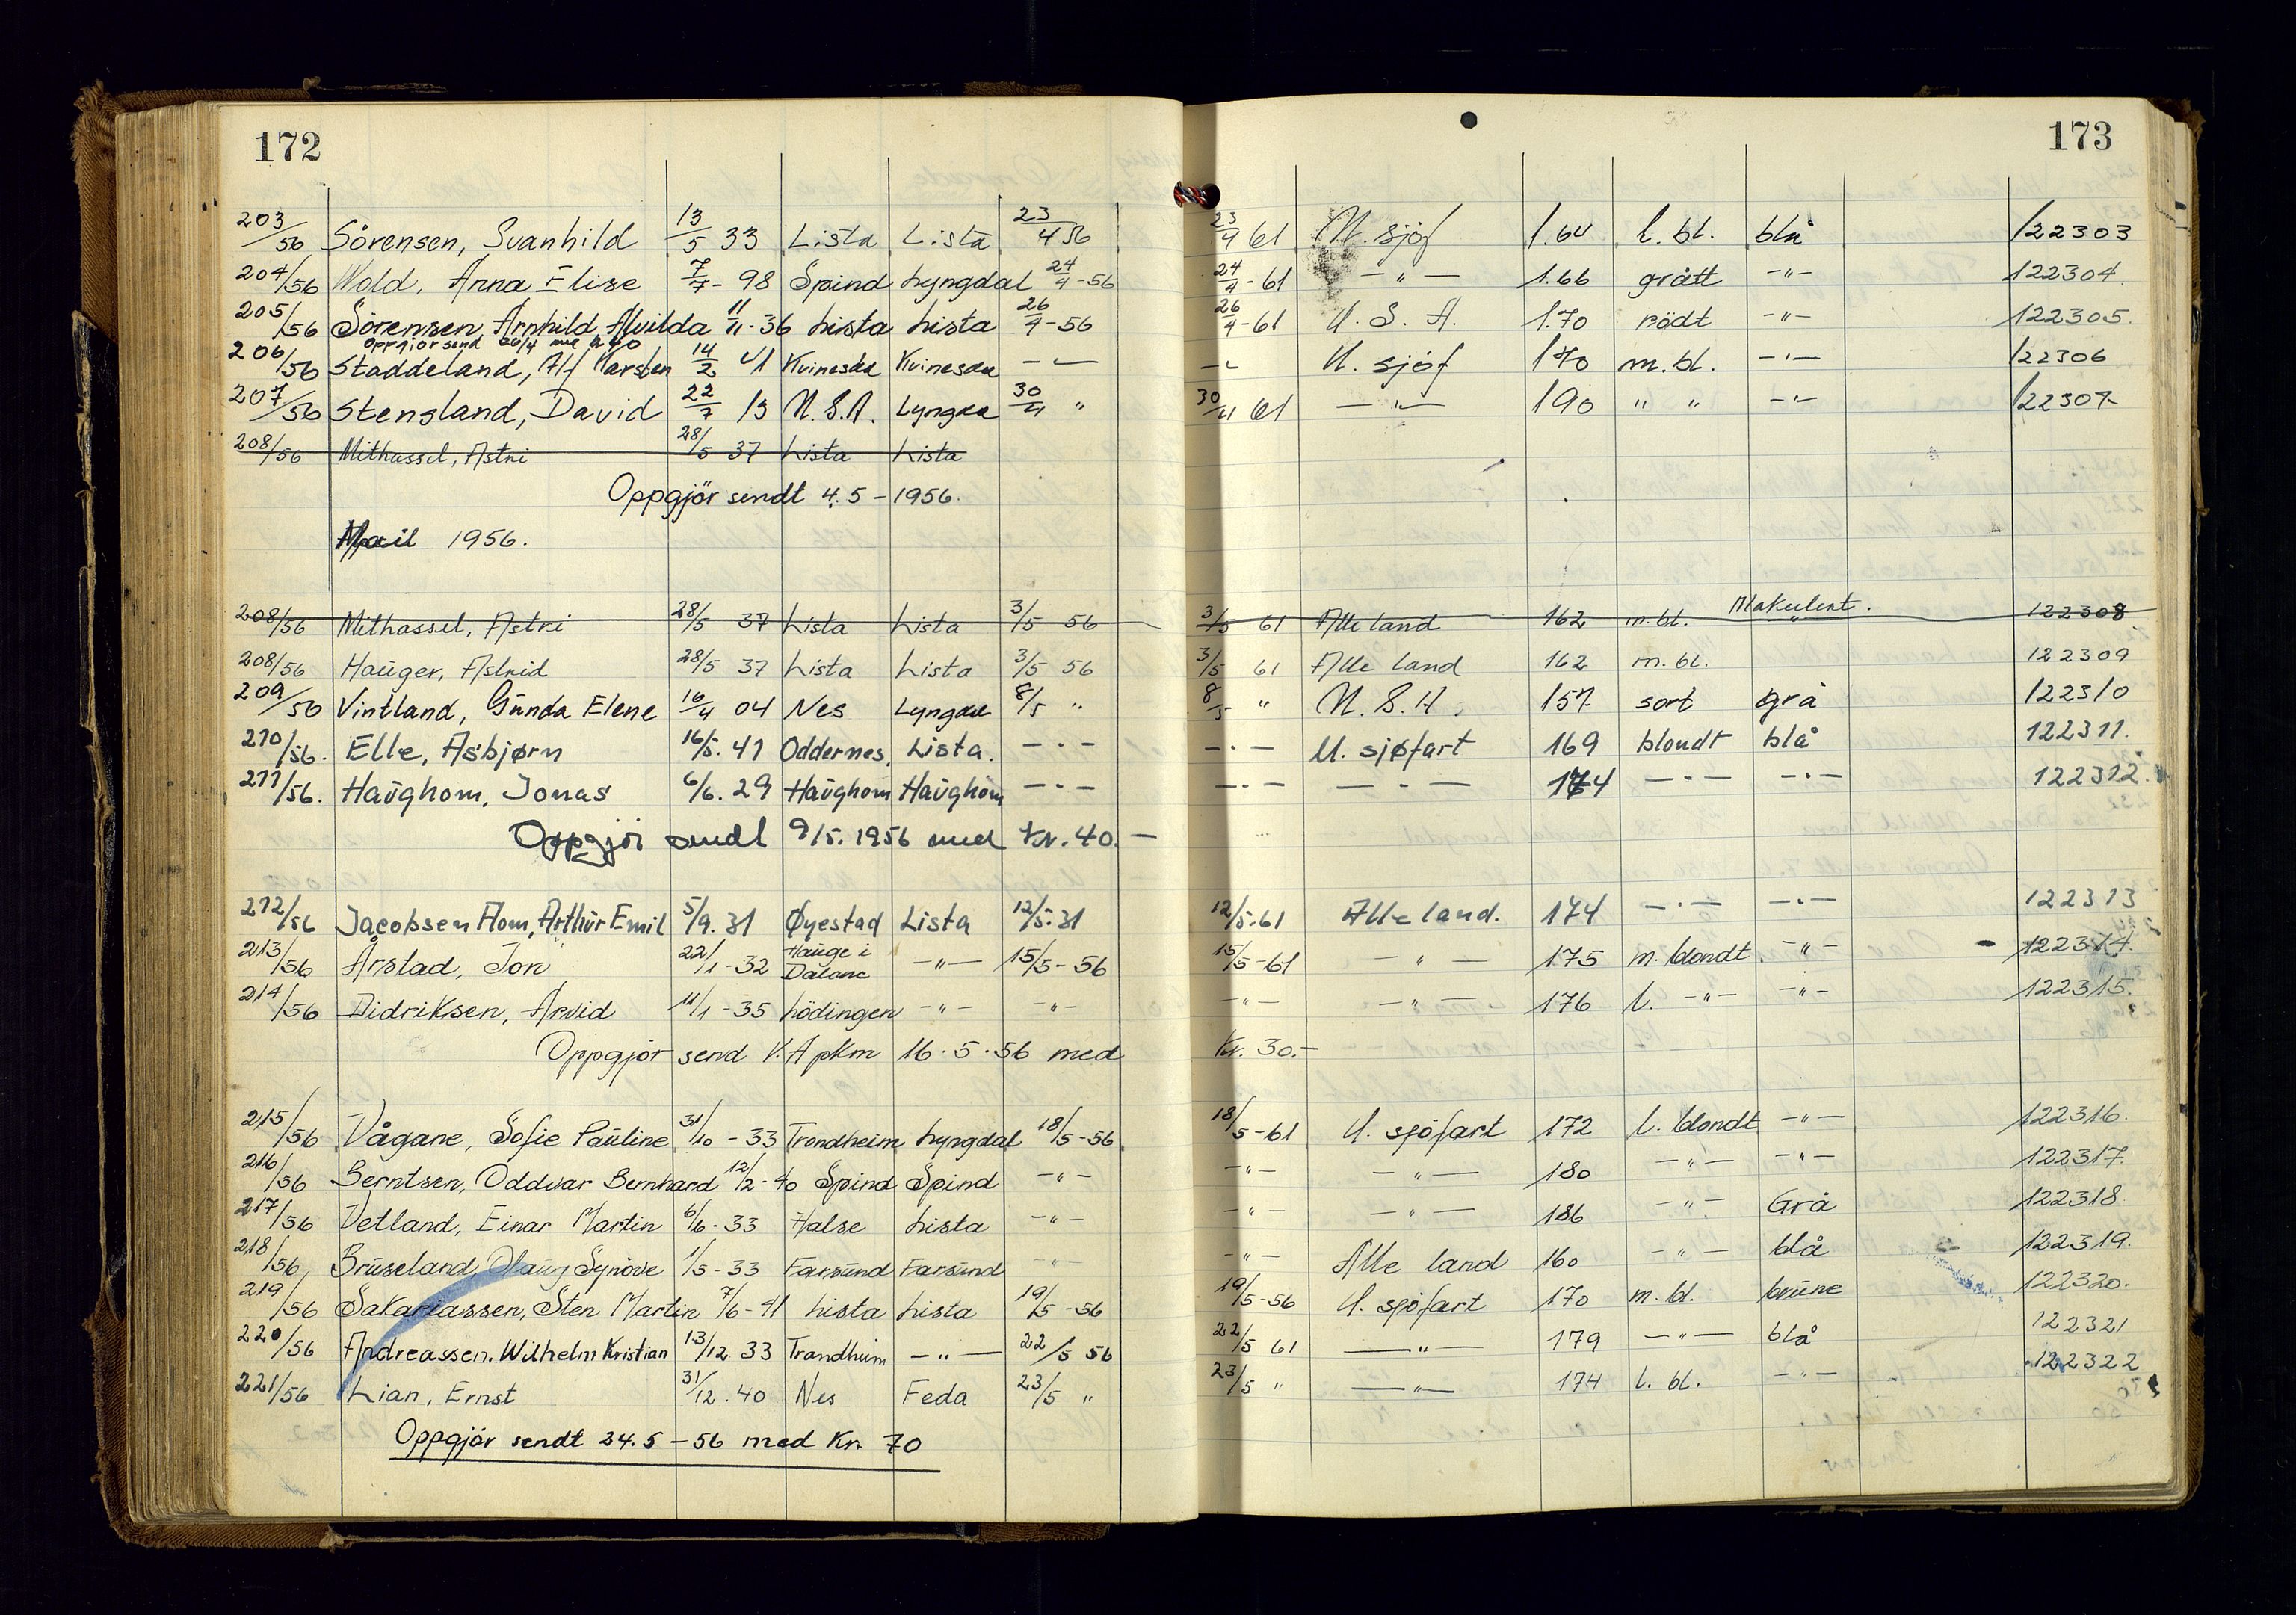 172
173
203/56 Sörensen, Svanhild 13/5 33 Lista Lista 23/4 56 23/4 61 U. sjöf 1.64 l. bl. blå 122303
204/56 Wold, Anna Elise 7/7 - 98 Spind Lyngdal 24/4 - 56 24/4 - 61 — " — 1.66 grått - " - 122304.
205/56 Sörensen, Arnhild Alvilda 11/11 - 36 Lista Lista 26/4 - 56 26/4 - 61 U. S. A. 1.70 rödt - " - 122305.
Oppgjör send 26/4
206/56 Staddeland, Alf Karsten 14/2 41 Kvinesdal Kvinesdal — " — - " - U. sjöf 170 m. bl. - " - 122306
207/56 Stensland, David 22/7 13 U.S.A. Lyngdal 30/4 " 30/4 61 — " — 190 " " - " - 122307
208/56 Mithassel, Astri 28/5 37 Lista Lista
Oppgjör sendt 4.5 - 1956.
1956.
208/56 Mithassel, Astri 28/5 37 Lista Lista 3/5 56 3/5 61 Alle land 162 m. bl. " Makulert. 122308
208/56 Hauger, Astrid 28/5 37 Lista Lista 3/5 56 3/5 61 Alle land 162 m. bl. 122309
209/56 Vintland, Gunda Elene 16/4 04 Nes Lyngdal 8/5 " 8/5 " U. S. A. 157 sort grå 122310
210/56. Elle, Asbjørn 16/5. 41 Oddernes, Lista. - " - - " - U. sjøfart 169 blondt blå 122311.
211/56. Haughom, Jonas 6/6. 29 Haughom Haughom - " - - " - — " — 174 - " - - " - 122312.
Oppgjör sendt 9/5. 1956 med Kr. 40.—
212/56 Jacobsen Hom, Arthur Emil 5/9. 31 Øyestad Lista 12/5. 31 12/5. 61 Alle land. 174 - " - - " - 122313
213/56 Årstad, Jon 22/1 - 32 Hauge i Dalane — " — 15/5 - 56 15/5 - 61 — " — 175 m. blondt - " - 122314.
214/56 Didriksen, Arvid 11/1 - 35 Lödingen - " - - " - - " - — " — 176 l. - " - - " - 122315.
Oppgjör send V.A pkm 16.5.56 med Kr. 30.-
215/56 Vågane, Sofie Pauline 31/10 - 33 Trondheim Lyngdal 18/5 - 56 18/5 - 61 U. sjöfart 172 l. blondt - " - 122316.
216/56 Berntsen, Oddvar Bernhard 12/2 - 40 Spind Spind - " - - " - — " — 180 — " — - " - 122317.
217/56 Vetland, Einar Martin 6/6 - 33 Halse Lista - " - - " - — " — 186 - " - Grå 122318
218/56 Bruseland, Olaug Synöve 1/5 - 33 Farsund Farsund - " - - " - Alle land 160 - " - blå 122319.
219/56 Sakariassen, Sten Martin 7/6 - 41 Lista Lista 19/5 - 56 19/5 - 56 U. sjöfart 170 m. bl. brune 122320.
220/56 Andreassen, Wilhelm Kristian 13/12 33 Trondheim — " — 22/5 56 22/5 61 — " — 179 — " — blå 122321
221/56 Lian, Ernst 31/12. 40 Nes Feda 23/5 " 23/5 " — " — 174 l. bl. - " - 122322
Oppgjör sendt 24.5 - 56 med Kr. 70